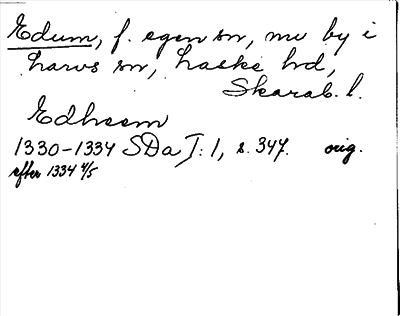 Edum, f. egen sn, nu by i
Larvs sn, Laske hd,
Skarab. l.
Edheem
1330-1334 SDa I:1, s. 347. orig.
efter 1334 4/5